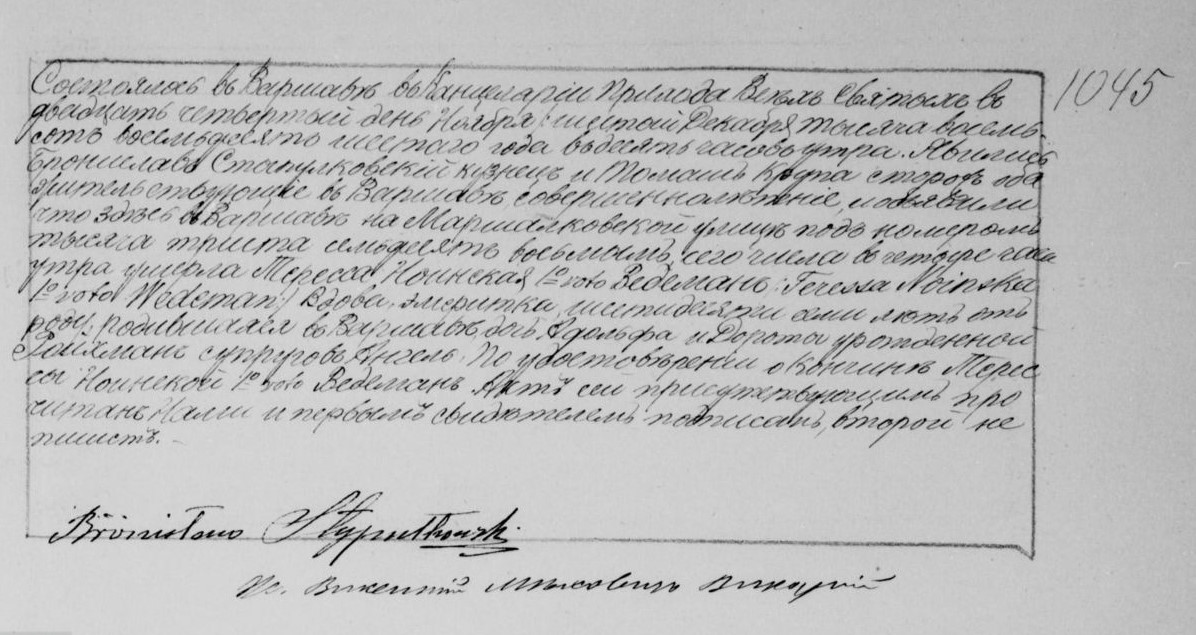 1045
Состоялось въ Варшавѣ въ Канцеляріи Прихода Всѣхъ Святыхъ въ
двадцать четвертый день Ноября /шестой Декабря/ тысяча восемь-
сотъ восемьдесятъ шестаго года въ десять часовъ утра. Явились
Брониславъ Стыпулковскій кузнецъ и Томашъ Крупа сторожъ оба
жительствующіе въ Варшавѣ, совершеннолѣтніе, и объявили
что здѣсь въ Варшавѣ на Маршалковской улицѣ подъ номеромъ
тысяча триста семьдесятъ восьмымъ, сего числа въ четыре часа
утра умерла Тереса Ноинская 1º voto Ведеманъ /: Teressa Noinska
1º voto Wedeman:/ вдова, эмеритка, шестидесяти семи лѣтъ отъ
роду, родившаяся въ Варшавѣ, дочь Адольфа и Дороты урожденной
супруговъ Ангель. По удостовѣреніи о кончинѣ Тере
сы Ноинской 1º voto Ведеманъ. Актъ сей присутствующимъ про
читанъ Нами и первымъ свидѣтелемъ подписанъ, второй не
пишетъ. –
Bronisław Stypułkowski
Кс. Викентій Викарій